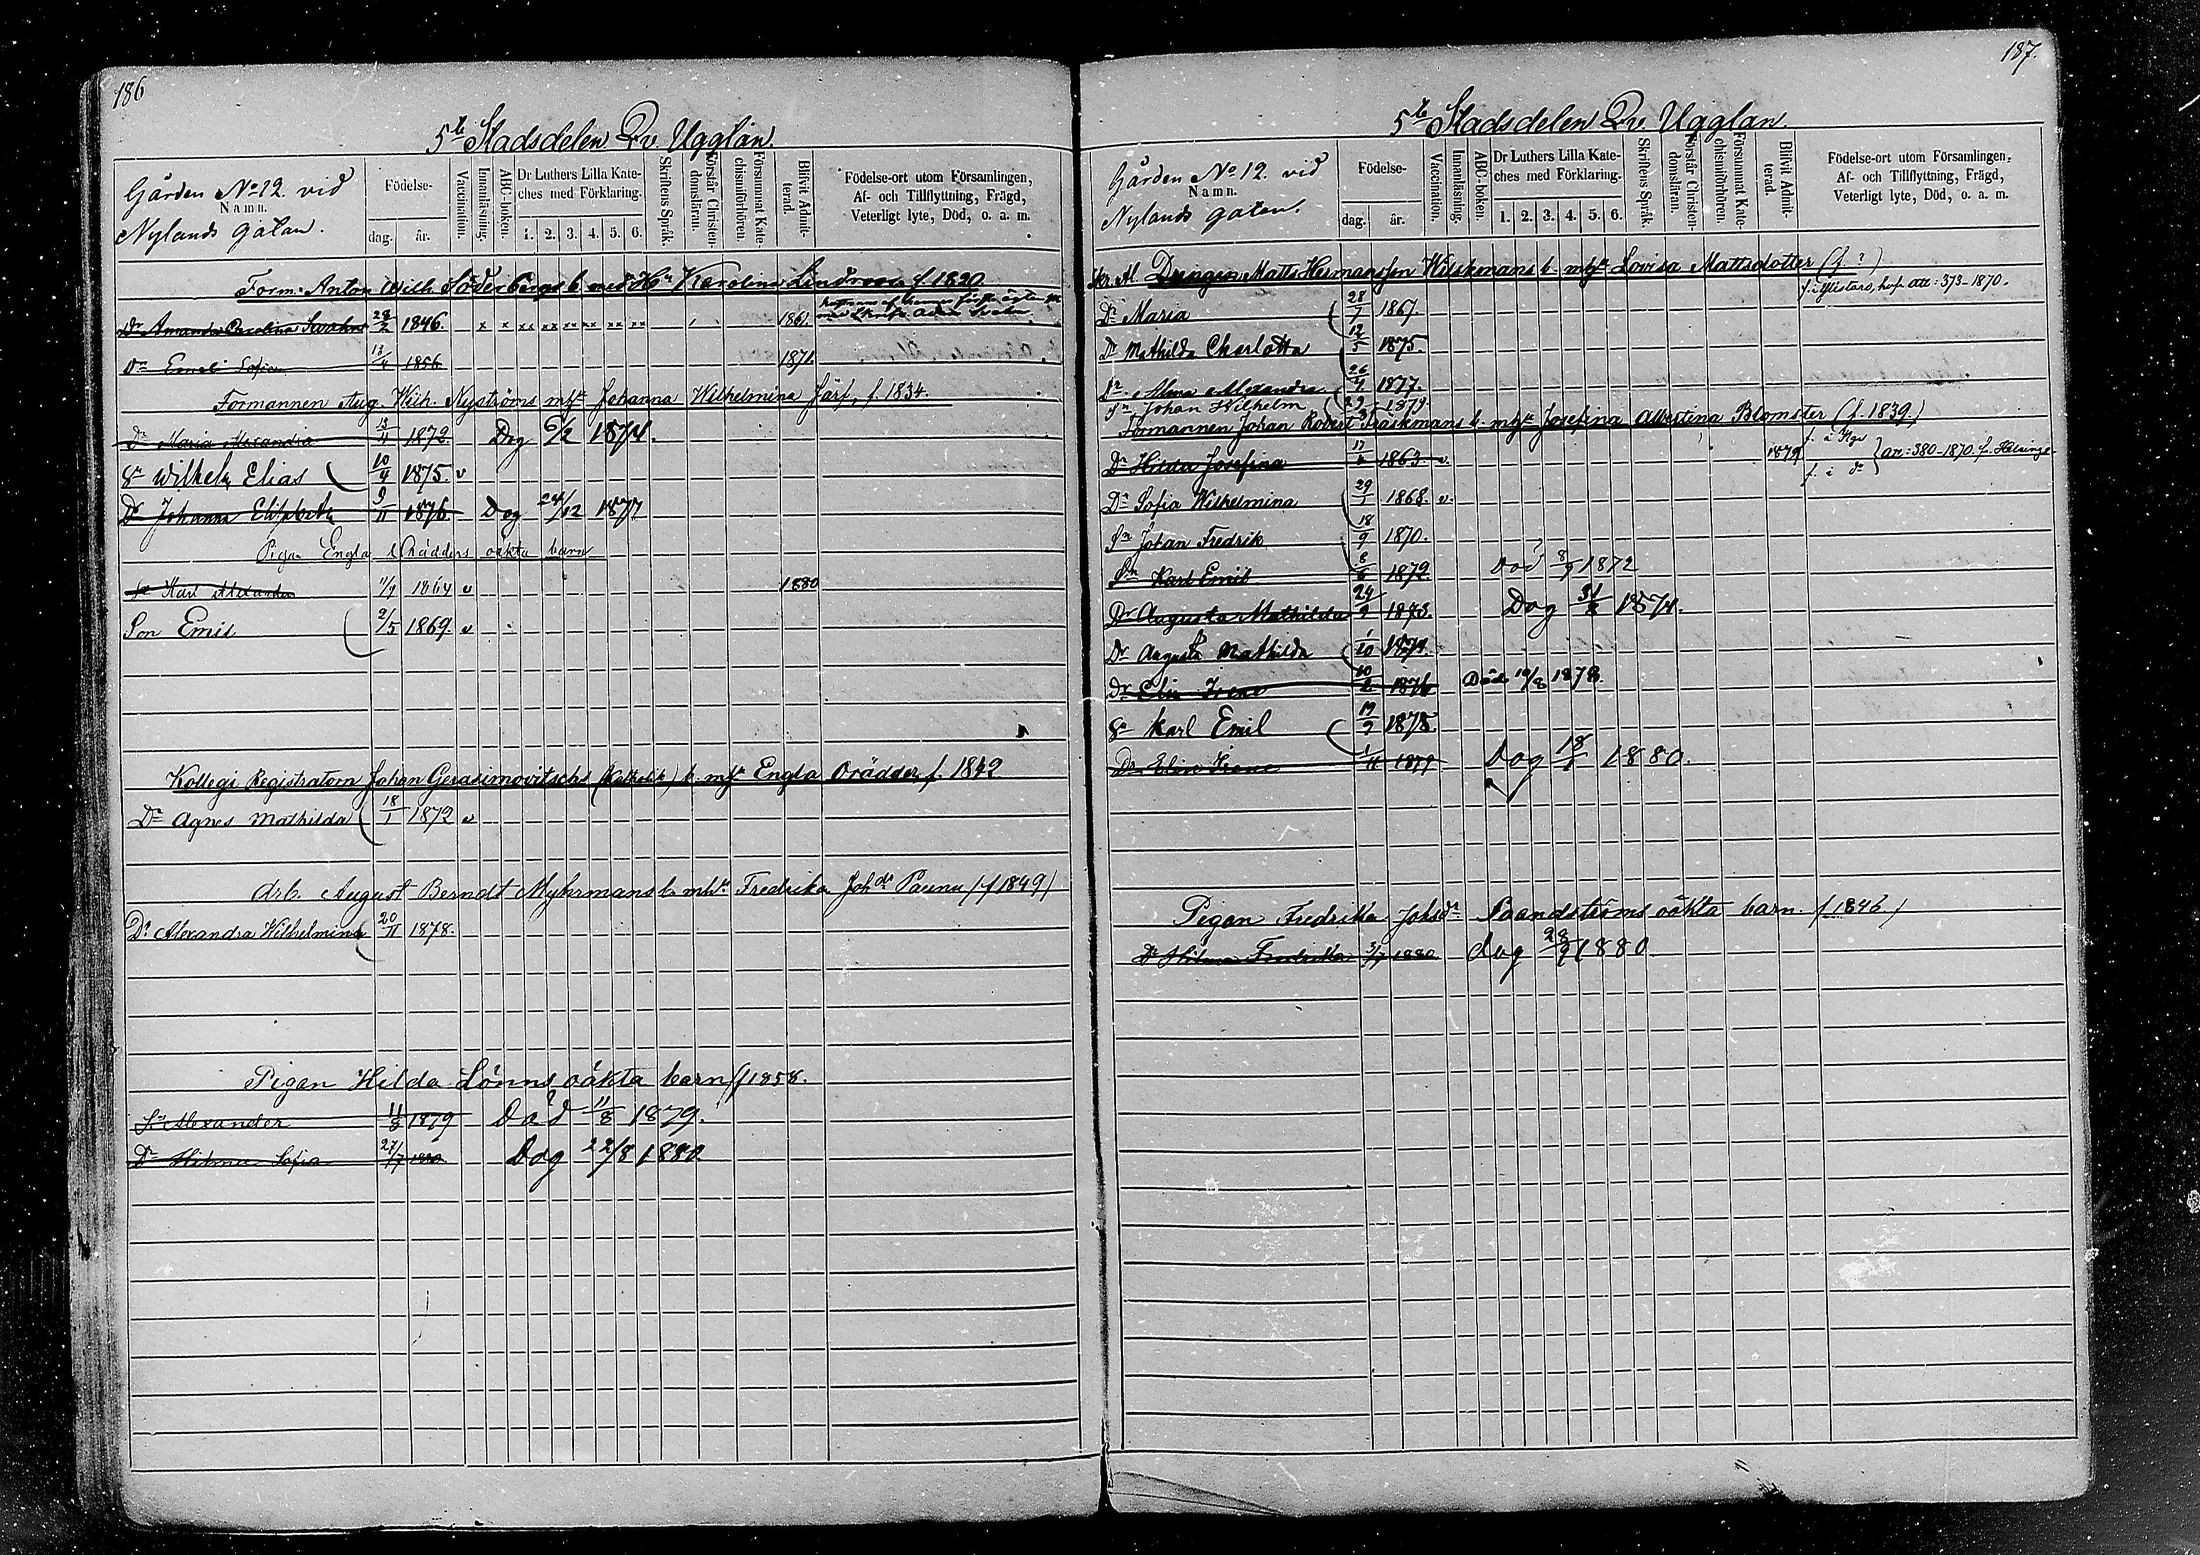 186
5te Stadsdelen Qv. Ugglan.
Gården No 12. vid
Namn.
Nylands gatan.
Födelse-
dag.
år.
Vaccination.
Innanläsning.
ABC-boken.
Dr Luthers Lilla Kate-
ches med Förklaring.
1. 2. 3. 4. 5. 6.
Skriftens Språk.
Förstår Christen-
domsläran.
Försummat Kate-
chismiförhören.
Blifvit Admit-
terad.
Födelse-ort utom Församlingen,
Af- och Tillflyttning, Frägd,
Veterligt lyte, Död, o. a. m.
Form. Anton Wilh. Söderbergs b. med Hu Karolina Lindroos f. 1820
Dr Amanda Carolina 28/2 1846. x x xx xx xx xx xx 1861.
Dr Emeli Sofia 13/4 1856 1871
Formannen Aug. Wilh. Nyströms m hu Johanna Wilhelmina Järf, f. 1834.
Dr Maria Alexandra 13/11 1872 Dog 6/2 1874.
Sn Wilhelm Elias 10/4 1875. v
Dr Johanna Elisabeth 9/11 1876 Dog 24/12 1877
Pigan Engla Orädders oäkta barn
Sn Karl Alexander 1/9 1864 v 1880
Son Emil 2/5 1869. v
Kollegi Registratorn Johan Gerasimovitschs (Katholik) b. m hu Engla Orädder, f. 1842
Dr Agnes Mathilda 18/1 1872 v
Arb. August Berndt Myhrmans b. m hu Fredrika Johdr Paunu (f 1849)
Dr Alexandra Wilhelmina 20/11 1878.
Pigan Hilda Lönns oäkta barn (f 1858.
Sn Alexander 11/8 1879 Död 11/8 1879.
Dr Hilma Sofia 27/7 1880 Dog 22/8 1880.
187.
5te Stadsdelen Qv. Ugglan.
Gården No 12. vid
Namn.
Nylands gatan.
Födelse-
dag.
år.
Vaccination.
Innanläsning.
ABC-boken.
Dr Luthers Lilla Kate-
ches med Förklaring.
1. 2. 3. 4. 5. 6.
Skriftens Språk.
Förstår Christen-
domsläran.
Försummat Kate-
chismiförhören.
Blifvit Admit-
terad.
Födelse-ort utom Församlingen,
Af- och Tillflyttning, Frägd,
Veterligt lyte, Död, o. a. m.
Drengen Matts Hermansson b. m hu Lovisa Mattsdotter (f. ?)
att: 373-1870.
Dr Maria 28/7 1867.
Dr Mathilda Charlotta 12/5 1875.
Dr Alma Alexandra 26/4 1877.
Sn Johan Wilhelm 29/3 1879.
Formannen Johan Robert Träskmans b. m hu Josefina Albertina Blomster (f. 1839.)
Dr Hilda Josefina 1863 v. 1879 att: 380-1870 f. Helsinge
f. i do
Dr Sofia Wilhelmina 29/1 1868. v.
Sn Johan Fredrik 18/9 1870.
Sn Karl Emil 8/6 1872 Död 8/9 1872
Dr Augusta Mathilda 24/9 1873. Dog 31/8 1874.
Dr Augusta Mathilda 1/10 1874.
Dr Elin Irene 10/2 1876 Död 19/8 1878.
Sn Karl Emil 19/9 1878.
Dr Elin Irene 1/11 1879 Dog 18/1 1880.
Pigan Fredrika Johsdr oäkta barn. (1846)
Dr Hilma Fredrika 3/7 1880 dog 28/9 1880.